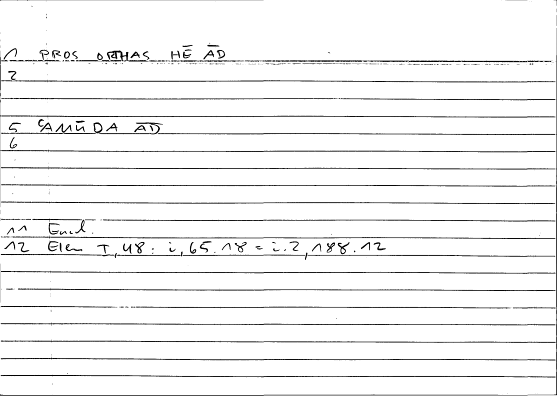 1 PROS ORTHAS HĒ A̅D̅
2
5 ʿAMŪDA A̅D̅
6
11 Eucl.
12 Elem I,48: i,65.18 = i.2,188.12